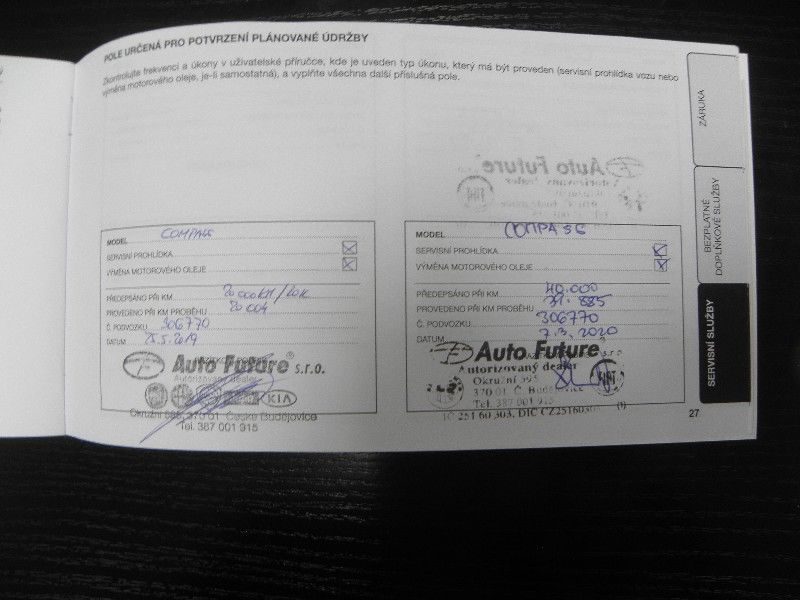 POLE URČENÁ PRO POTVRZENÍ PLÁNOVANÉ ÚDRŽBY
Zkontrolujte frekvenci a úkony v uživatelské příručce, kde je uveden typ úkonu, který má být proveden (servisní prohlídka vozu nebo
výměna motorového oleje, je-li samostatná), a vyplňte všechna další příslušná pole.
ZÁRUKA
BEZPLATNÉ
DOPLŇKOVÉ SLUŽBY
SERVISNÍ SLUŽBY
Auto Future
MODEL COMPASS
SERVISNÍ PROHLÍDKA
VÝMĚNA MOTOROVÉHO OLEJE
PŘEDEPSÁNO PŘI KM 20 000 KM / ROK
PROVEDENO PŘI KM PROBĚHU 20 004
Č. PODVOZKU 306770
DATUM 5. 2019
Auto Future s.r.o.
Autorizovaný dealer
KIA
Okružní 370 01 České Budějovice
Tel. 387 001 915
MODEL COMPASS
SERVISNÍ PROHLÍDKA
VÝMĚNA MOTOROVÉHO OLEJE
PŘEDEPSÁNO PŘI KM 40.000
PROVEDENO PŘI KM PROBĚHU 31.885
Č. PODVOZKU 306770
DATUM 7.3.2020
Auto Future
Autorizovaný dealer
Okružní 595
370 01 Č. Budějovice
Tel. 387 001 915
FIAT
IČ 251 60 303, DIČ CZ25160303
(1)
27